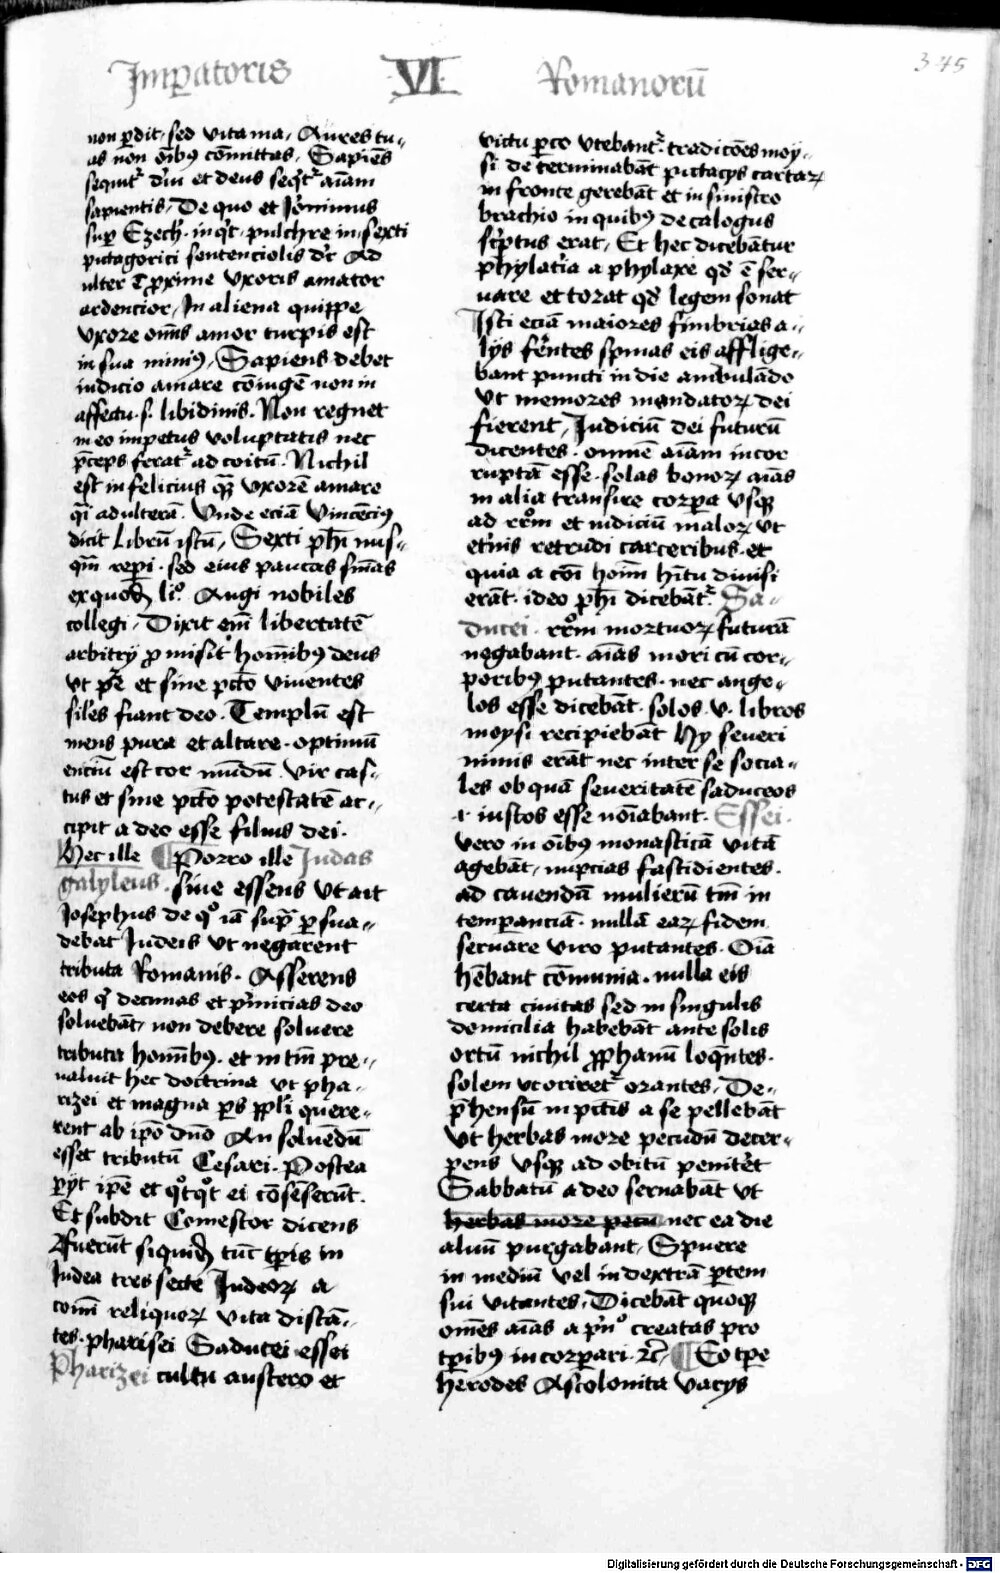 Imp̲atoris VI Romanorū
345
non p̲dit, sed vita ma, Aures tu-
as non oīb9 cōmittas, Sapiēs
sequit᷑ dm̄ et deus seq̄t᷑ aīam
sapientis, De quo et Jeronimus
sup̲ Ezech. inq̄t, pulchre in sexti
pitagorici sentenciolis dr̄ Ad
ulter ē p̲xime vxoris amator
ardencior, In aliena quippe
vxore om̄is amor turpis est
in sua nimi9, Sapiens debet
iudicio amare cōiugē non in
affectu .s. libidinis. Non regnet
in eo impetus voluptatis nec
p̄ceps ferat᷑ ad coitū. Nichil
est infelicius qͣ vxorē amare
qͣi adulterā. Vnde eciā vincēci9
dicit Librū istū, Sexti ph̄i nus-
qͣm rep̲i. sed eius paucas sn̄ias
ex quodā liº. Augi nobiles
collegi, Dixit em̄ libertatē
arbitrij p̲misit hom̄ib9 deus
vt pͬe et sine pctō viuentes
sil̄es fiant deo. Templū est
mens pura et altare. optimū
enciū est cor mūdū. vir cas-
tus et sine pctō potestatē ac-
cipit a deo esse filius dei.
Hec ille ¶ Porro ille Judas
galyleus. siue essens vt ait
Josephus de qº iā supͣ p̲sua-
debat Judeis vt negarent
tributa Romanis. Asserens
eos qͥ decimas et pͥmicias deo
soluebāt, non debere soluere
tributa hom̄ib9. et in tm̄ pre-
ualuit hec doctrina vt pha-
rizei et magna p̲s pp̲li quere-
rent ab ip̄o dn̄o An soluēdū
esset tributū Cesari. Postea
p̲ijt ip̄e et qͦtqͦt ei cōsēserūt.
Et subdit Comestor dicens
Fuerūt siquidē tūc tp̲is in
Judea tres secte Judeoꝝ a
com̄i reliquoꝝ vita distā-
tes. pharisei Saducei essei
Pharizei cultu austero et
victu p̲co vtebant᷑. tradicōes moy-
si determinabāt pictacijs cartaꝝ
in fronte gerebāt et in sinistro
brachio in quib9 decalogus
scͥptus erat, Et hec dicebātur
phylatͥia a phylaxe qd̄ ē ser-
uare et torat qd̄ legem sonat
Isti eciā maiores fimbrias a-
lijs fe̲ntes spinas eis afflige-
bant puncti in die ambulādo
vt memores mandatoꝝ dei
fierent, Judiciū dei futurū
dicentes. omnē aīam incor
ruptā esse. solas bonoꝝ aīas
in alia transire corp̲a vsqꝫ
ad rr̄om et iudiciū maloꝝ vt
et̲nis retrudi carceribus. et
quia a cōi hoīm hītu diuisi
erāt. ideo ph̄i dicebāt᷑. Sa-
ducei. rr̄om mortuoꝝ futurā
negabant. aīas mori cū cor-
poribus putantes. nec ange-
los esse dicebāt. solos .v. libros
moysi recipiebāt Hy seueri
nimis erāt nec inter se socia-
les ob quā seueritatē saduceos
.i. iustos esse noīabant. Essei.
vero in oīb9 monasticā vitā
agebāt, nupcias fastidientes.
ad cauendā mulierū tm̄ in
temp̲anciā. nullā eaꝝ fidem
seruare viro putantes. Oīa
hēbant cōmunia. nulla eis
certa ciuitas sed in singulis
domicilia habebāt ante solis
ortū nichil p̲phanū loq̄ntes.
solem vt oriret᷑ orantes, De-
p̄hensū in pctis a se pellebāt
vt herbas more pecudū decer-
pens vsqꝫ ad obitū penitēt
Sabbatū adeo seruabāt vt
herbas more pecu nec ea die
aluū purgabant, Spuere
in mediū vel in dextrā p̲tem
sui vitantes, Dicebāt quoqꝫ
om̄es aīas a pͥnº creatas pro
tp̲ibus incorp̲ari. ꝛc̄, ¶ Eo tp̲e
herodes Ascolonita varijs
Digitalisierung gefördert durch die Deutsche Forschungsgemeinschaft - DFG